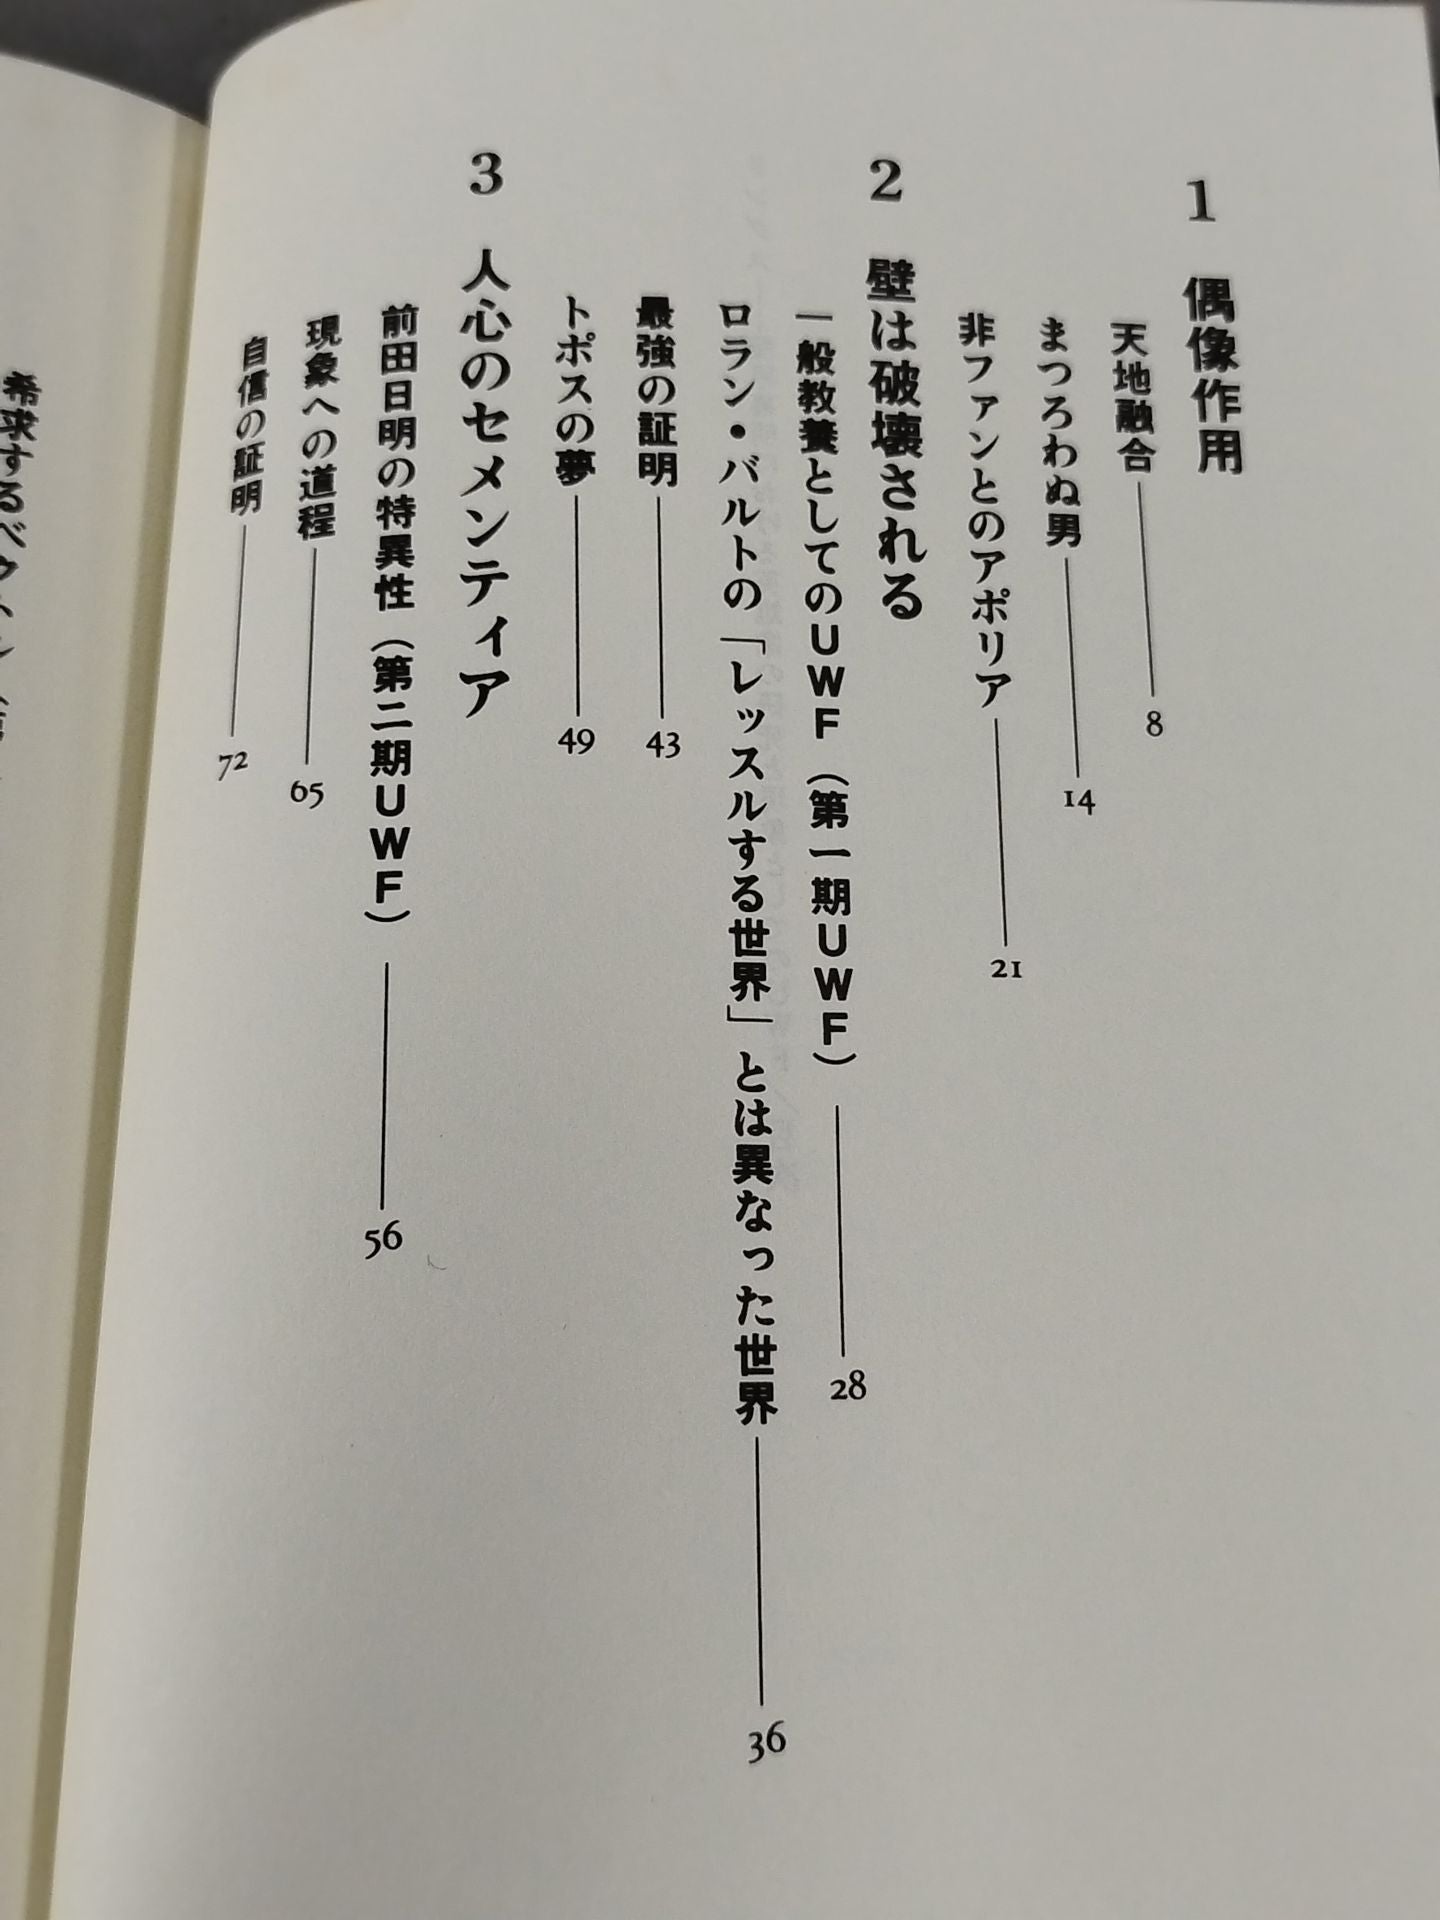 1 偶像作用
天地融合 8
まつろわぬ男 14
非ファンとのアポリア 21
2 壁は破壊される
一般教養としてのUWF（第一期UWF） 28
ロラン・バルトの「レッスルする世界」とは異なった世界 36
最強の証明 43
トポスの夢 49
3 人心のセメンティア
前田日明の特異性（第二期UWF） 56
現象への道程 65
自信の証明 72
希求するベクトル